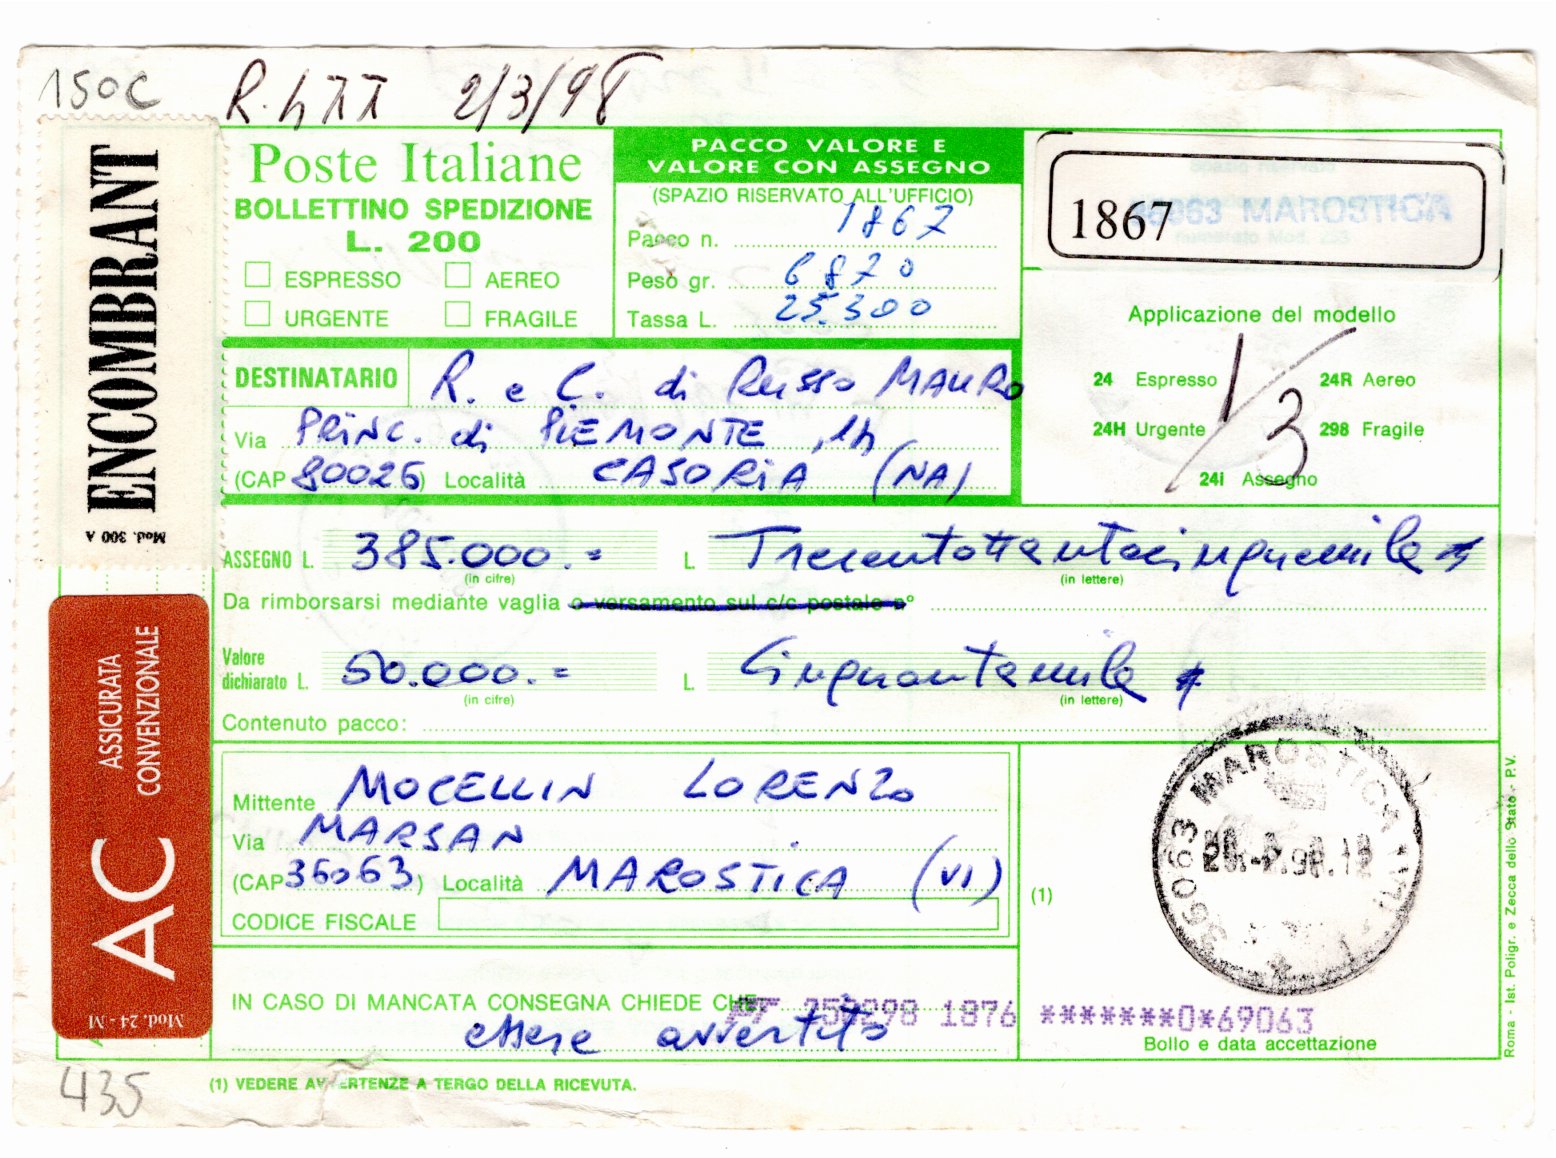 150C R. 477 2/3/98
ENCOMBRANT
Mod. 300 A
Poste Italiane
BOLLETTINO SPEDIZIONE
L. 200
ESPRESSO AEREO
URGENTE FRAGILE
PACCO VALORE E
VALORE CON ASSEGNO
(SPAZIO RISERVATO ALL'UFFICIO)
Pacco n. 1867
Peso gr. 6870
Tassa L. 25.300
1867
36063 MAROSTICA
Applicazione del modello
1/3
24 Espresso 24R Aereo
24H Urgente 298 Fragile
24i Assegno
DESTINATARIO R. e C. di Russo MAURO
Via PRINC. di PIEMONTE, 14
(CAP 80026) Località CASORIA (NA)
ASSEGNO L. 385.000.= L. Trecentottantacinquemila
(in cifre) (in lettere)
Da rimborsarsi mediante vaglia o versamento sul c/c postale n°
Valore
dichiarato L. 50.000.= L. Cinquantamila
(in cifre) (in lettere)
Contenuto pacco:
AC
ASSICURATA
CONVENZIONALE
Mod. 24 - M
Mittente MOCELLIN LORENZO
Via MARSAN
(CAP 36063) Località MAROSTICA (VI)
CODICE FISCALE
(1)
36063 MAROSTICA (VI)
IN CASO DI MANCATA CONSEGNA CHIEDE CHE
essere avvertito
250298 1876 *******0*69063
Bollo e data accettazione
Roma - Ist. Poligr. e Zecca dello Stato - P.V.
435
(1) VEDERE AVVERTENZE A TERGO DELLA RICEVUTA.